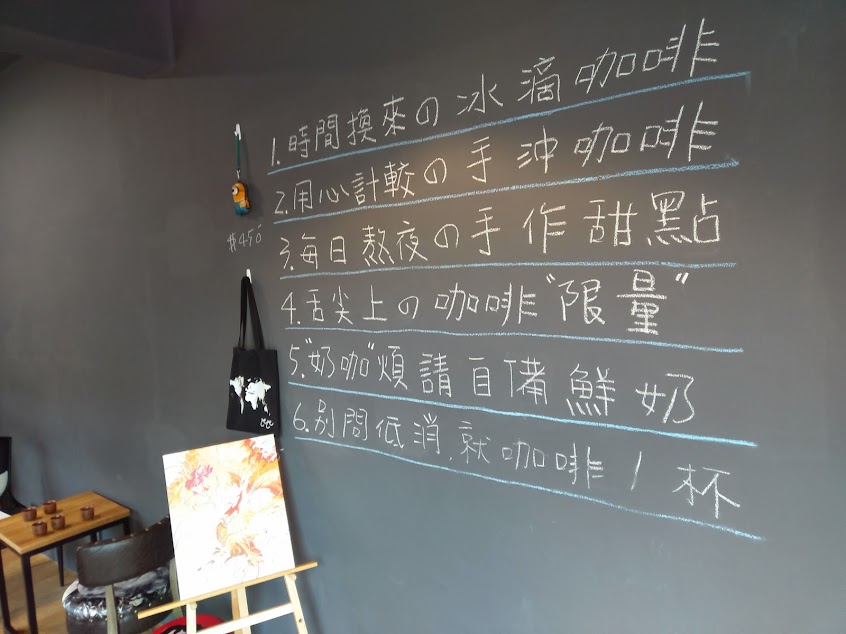 1.時間換來の冰滴咖啡
2.用心計較の手沖咖啡
3.每日熬夜の手作甜點
$450
4.舌尖上の咖啡"限量"
5."奶咖"煩請自備鮮奶
6.別問低消.就咖啡1杯